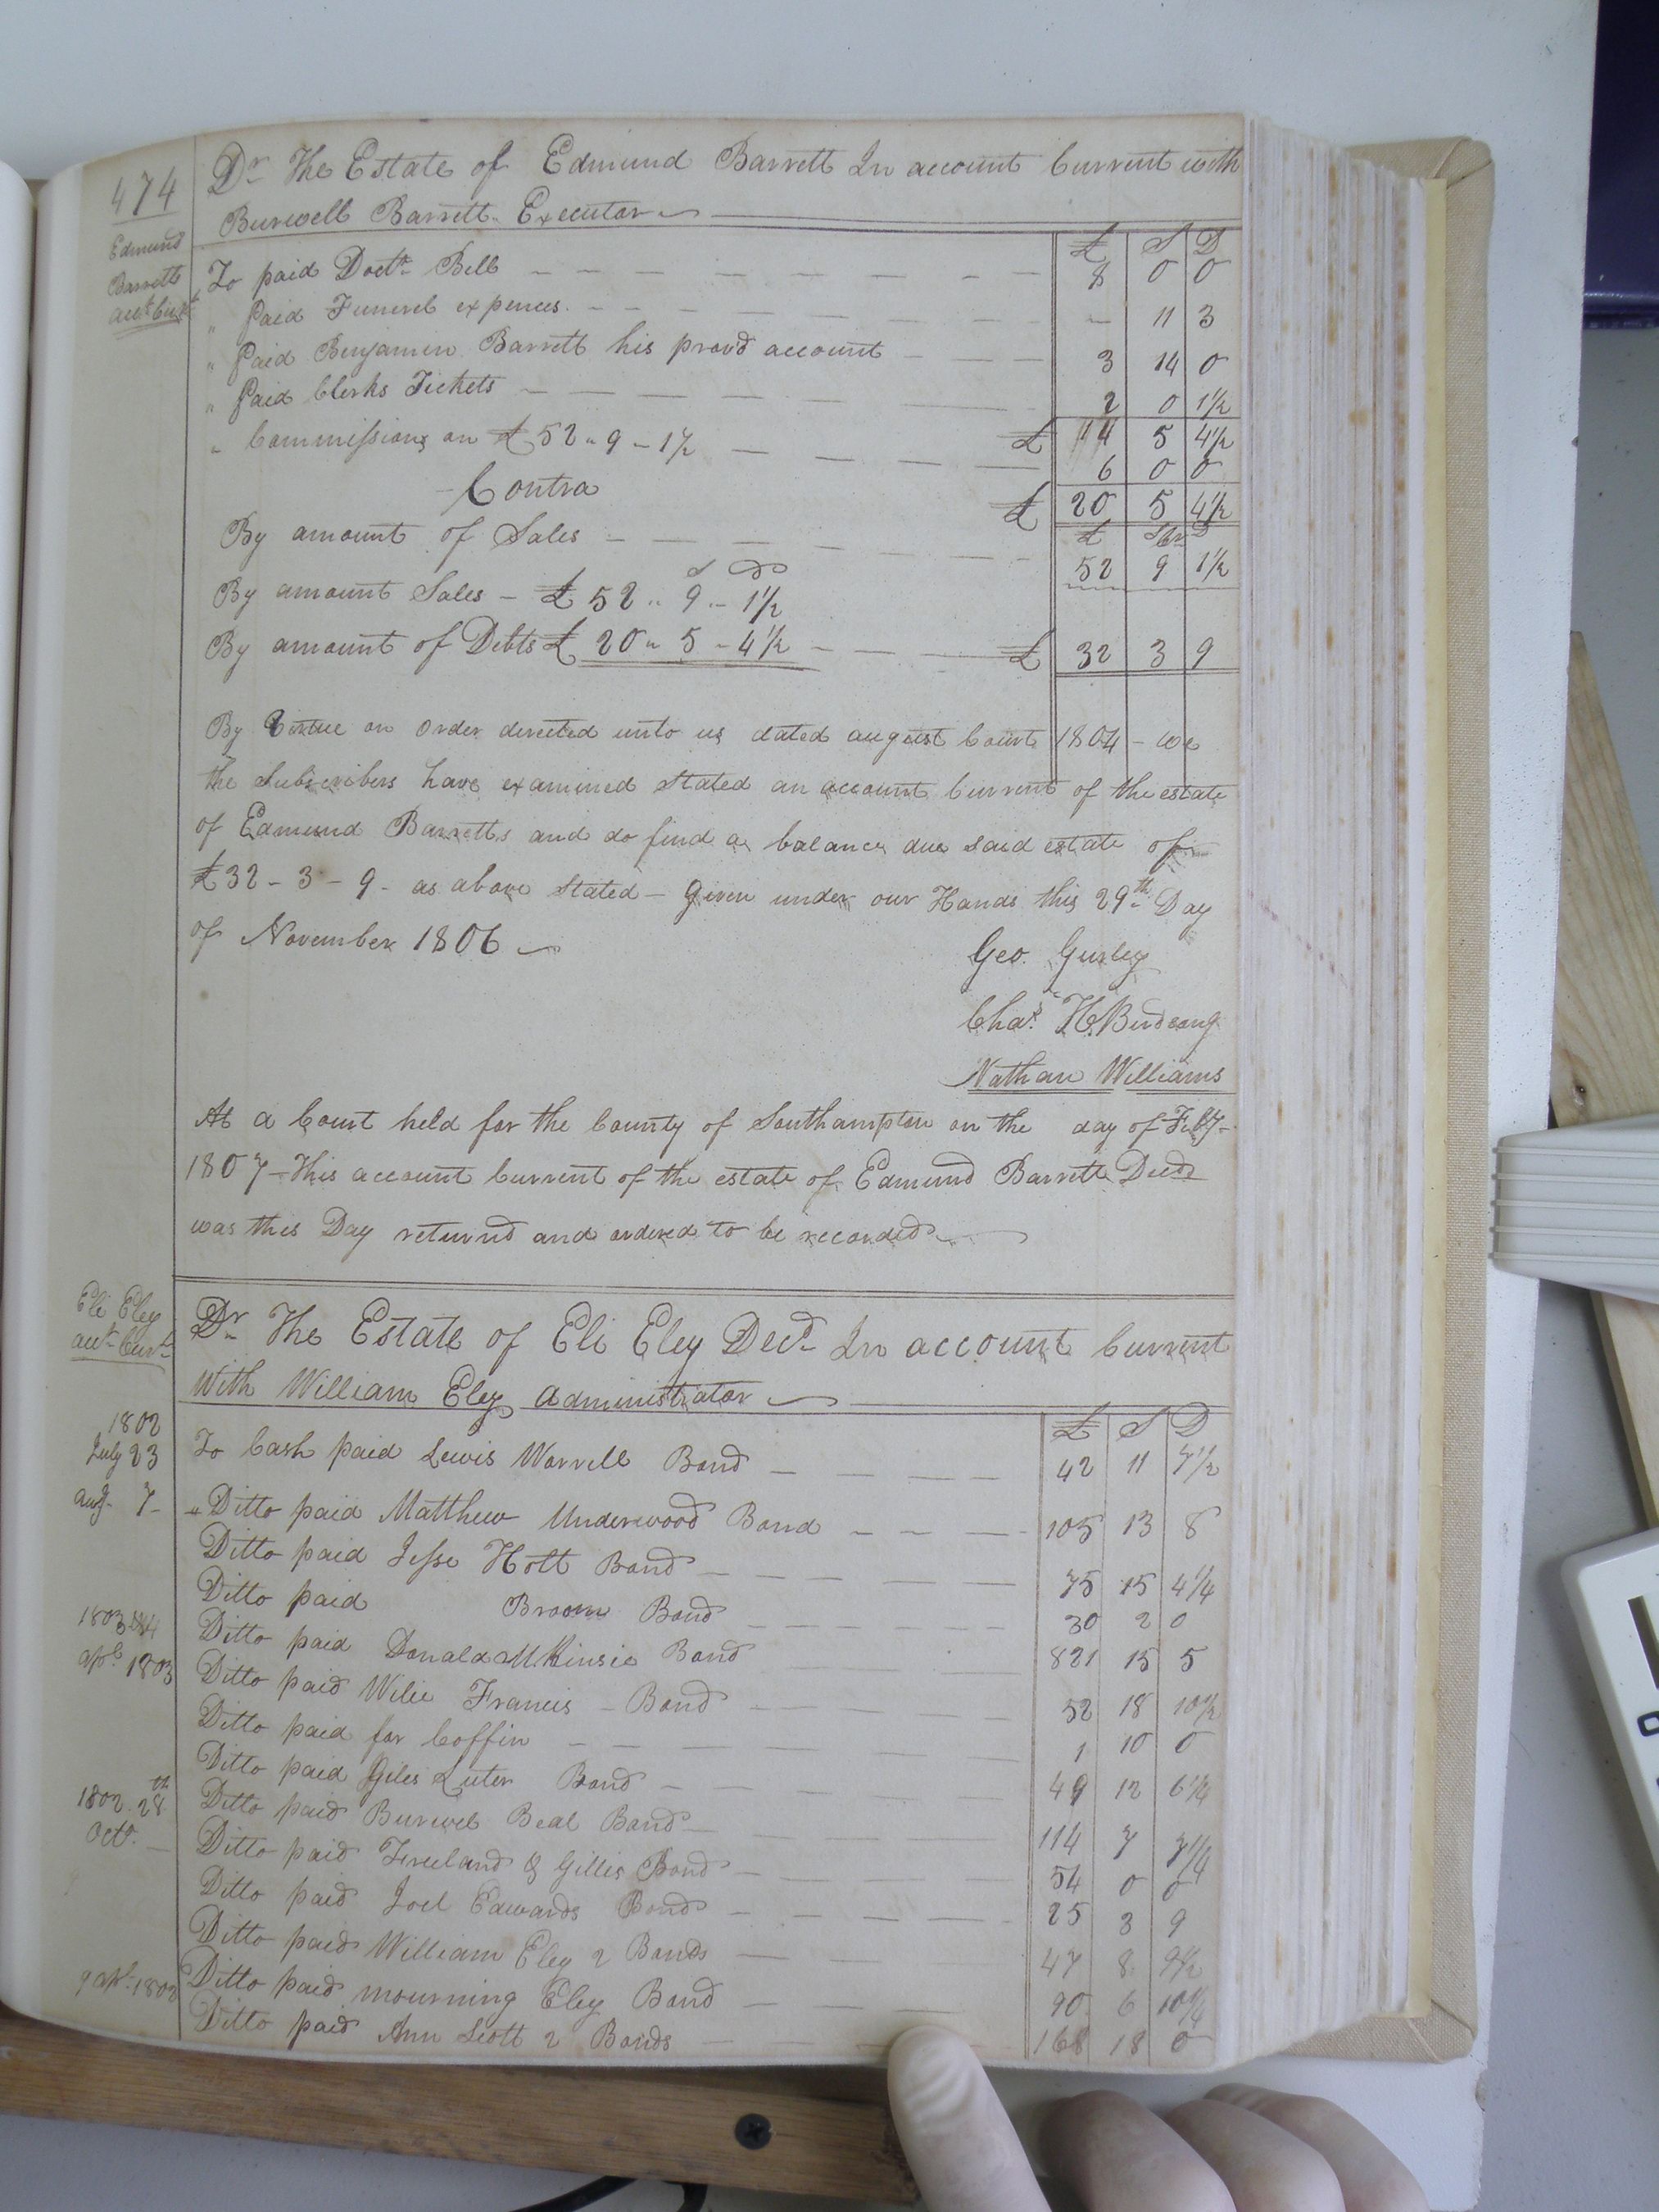 474
Dr The Estate of Edmund Barrett In account Current with
Burwell Barrett Executor
Edmund
Barretts
acct Curt
£ S D
To paid Doctr Bell 8 0 0
" paid Funerel expences 11 3
" paid Benjamin Barrett his provd account 3 14 0
" paid Clerks Tickets 2 0 1½
£ 14 5 4½
" Commissions on £52 " 9 - 1½ 6 0 0
Contra £ 20 5 4½
£ D
By amount of Sales 52 9 1½
S D
By amount Sales - £ 52 " 9 - 1½
By amount of Debts £ 20 " 5 - 4½ £ 32 3 9
By Virtue an order directed unto us dated august Court 1804 - we
the Subscribers have examined Stated an account Current of the estate
of Edmund Barretts and do find a balance due said estate of
£32 - 3 - 9 - as above Stated - Given under our Hands this 29th Day
of November 1806
Geo. Gurley
Chas. H. Birdsong
Nathan Williams
At a Court held for the County of Southampton on the day of Feby
1807 - This account Current of the estate of Edmund Barrett Decd
was this Day returnd and ordered to be recorded
Eli Eley
acct Curt
Dr The Estate of Eli Eley Decd In account Current
With William Eley administrator
£ S D
1802
July 23 To Cash paid Lewis Worrell Bond 42 11 7½
Aug. 7 " Ditto paid Matthew Underwood Bond 105 13 8
Ditto paid Jesse Holt Bond 75 15 4¼
Ditto paid Broom Bond 30 2 0
1803 Ditto paid Donald McKinsie Bond 821 15 5
apl 1803 Ditto paid Wilie Francis - Bond 52 18 10½
Ditto paid for Coffin 1 10 0
Ditto paid Giles Luter Bond 49 12 6¼
1802 28th Ditto paid Burwel Beal Bond 114 7 7¼
Octr. Ditto paid Freeland & Gillis Bond 54 0 0
Ditto paid Joel Edwards Bond 25 3 9
Ditto paid William Eley 2 Bonds 47 8 9½
9 apl. 1802 Ditto paid mourning Eley Bond 90 6 10¼
Ditto paid Ann Scott 2 Bonds 168 18 0